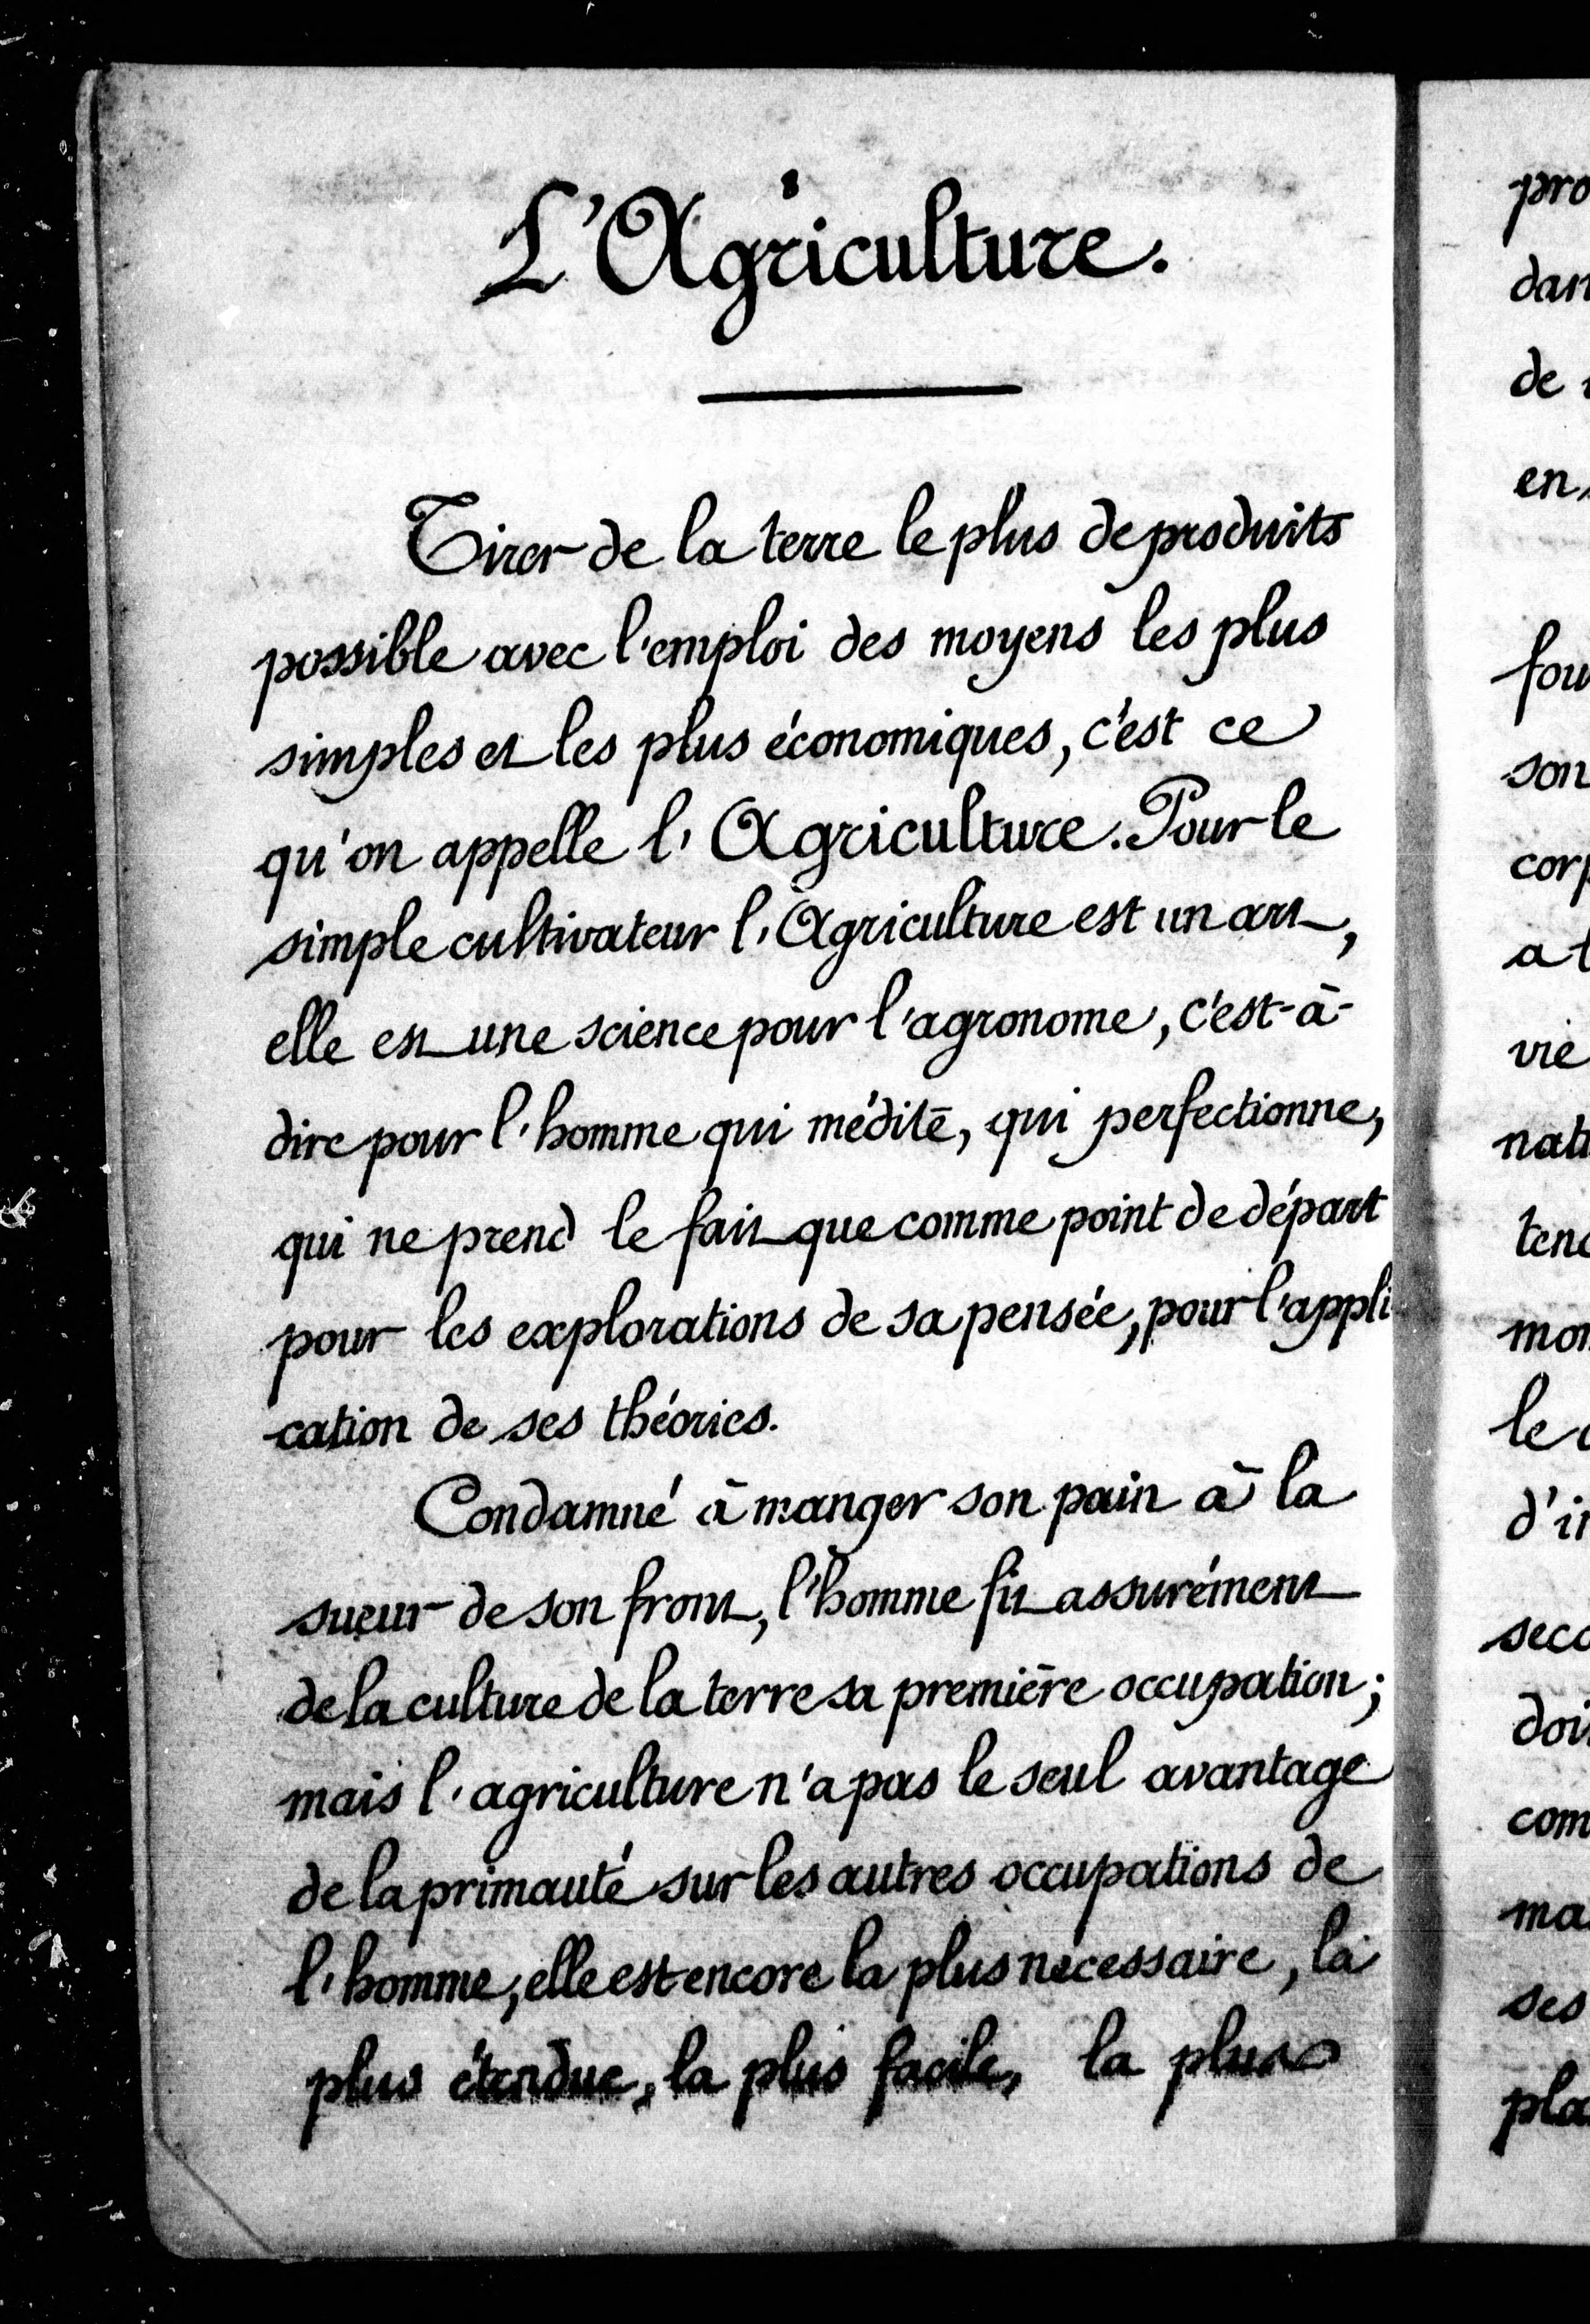 L'Agriculture.
Tirer de la terre le plus de produits
possible avec l'emploi des moyens les plus
simples et les plus économiques, c'est ce
qu'on appelle l'Agriculture. Pour le
simple cultivateur l'Agriculture est un art,
elle est une science pour l'agronome, c'est-à-
dire pour l'homme qui médite, qui perfectionne,
qui ne prend le fait que comme point de départ
pour les explorations de sa pensée, pour l'appli
cation de ses théories.
Condamné à manger son pain à la
sueur de son front, l'homme fit assurément
de la culture de la terre sa première occupation;
mais l'agriculture n'a pas le seul avantage
de la primauté sur les autres occupations de
l'homme, elle est encore la plus nécessaire, la
plus étendue, la plus facile, la plus
pro
dan
de
en
fou
son
corp
a t
vie
nat
tend
mon
le
d'in
seco
doi
com
ma
ses
pla